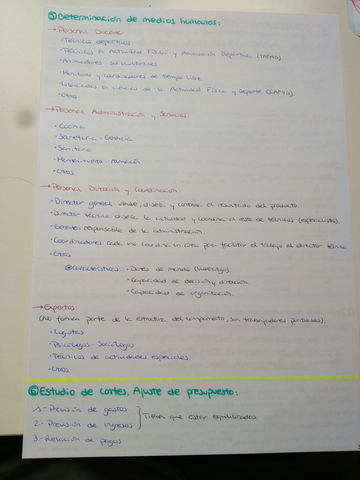 ⑤ Determinación de medios humanos:
→ Personal Docente:
· Técnicos deportivos
· Técnicos en Actividad Física y Animación Deportiva (TAFAD).
· Animadores Socioculturales
· Monitores y coordinadores de tiempo libre
· Licenciados en Ciencias de la Actividad Física y Deporte (CAFYD).
· Otros
→ Personal Administración y Servicios
· Cocina
· Secretaría - Gerencia
· Sanitario
· Mantenimiento -
· Otros
→ Personal Dirección y Coordinación:
· Director general: vende, diseña y controla el resultado del producto.
· Director técnico: diseña la actividad y coordina al resto de técnicos (especialistas).
· Gerente: responsable de la administración.
· Coordinadores: cada uno coordina un área para facilitar el trabajo al director técnico
· Otros
Características: · Dotes de mando (liderazgo).
· Capacidad de decisión y dirección
· Capacidad de organización.
→ Expertos:
(No forman parte de la estructura del campamento, son trabajadores puntuales).
· Logistas
· Psicólogos - Sociólogos
· Técnicos de actividades especiales
· Otros
⑥ Estudio de costes. Ajuste de presupuesto:
1.- Previsión de gastos
2.- Previsión de ingresos } Tienen que estar equilibrados
3.- Relación de pagos